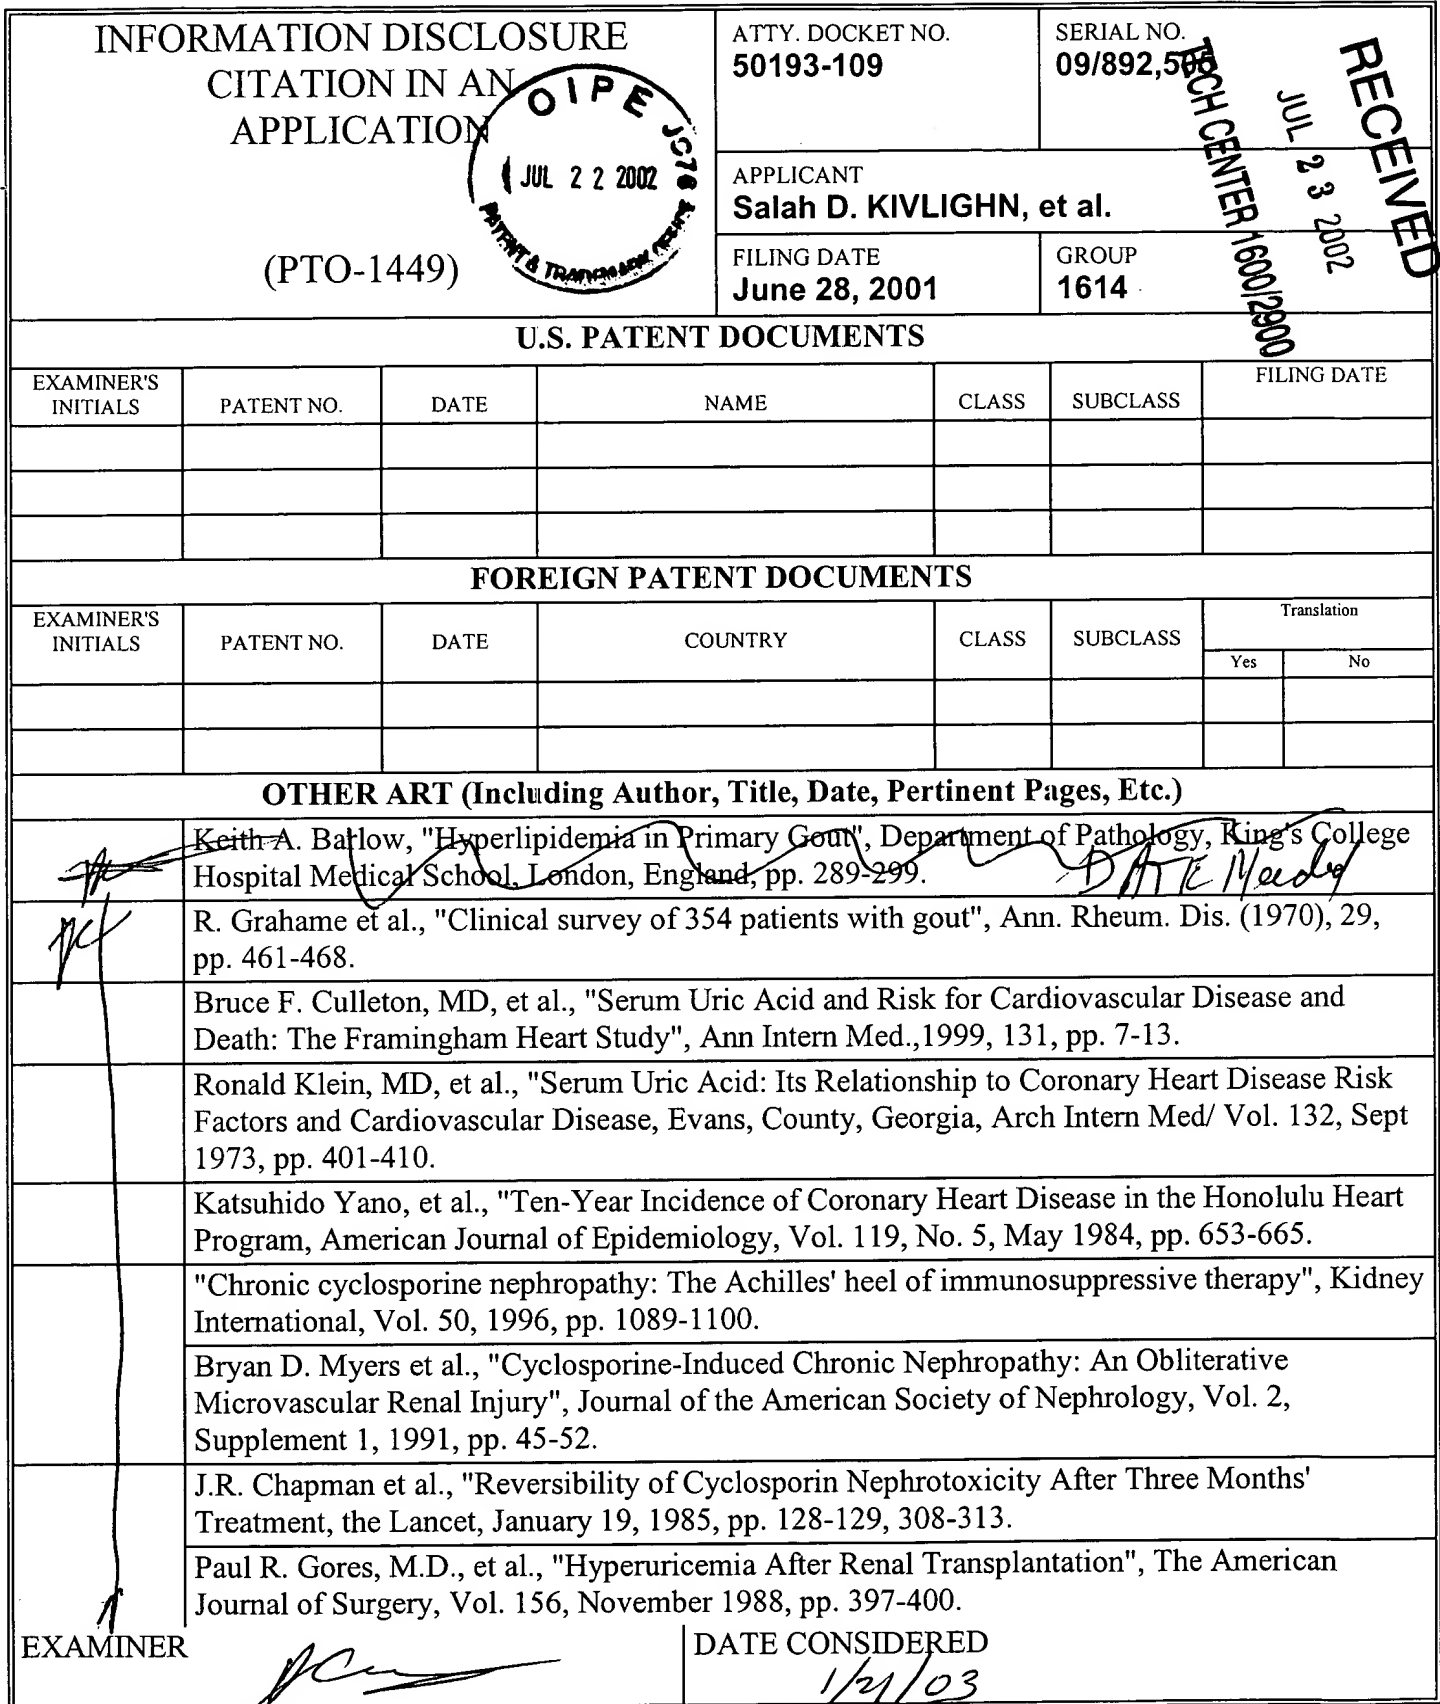 INFORMATION DISCLOSURE
CITATION IN AN
APPLICATION
(PTO-1449)
OIPE
JUL 22 2002
PATENT & TRADEMARK OFFICE
ATTY. DOCKET NO.
50193-109
SERIAL NO.
09/892,505
APPLICANT
Salah D. KIVLIGHN, et al.
FILING DATE
June 28, 2001
GROUP
1614
RECEIVED
JUL 23 2002
TECH CENTER 1600/2900
U.S. PATENT DOCUMENTS
EXAMINER'S
INITIALS
PATENT NO.
DATE
NAME
CLASS
SUBCLASS
FILING DATE
FOREIGN PATENT DOCUMENTS
EXAMINER'S
INITIALS
PATENT NO.
DATE
COUNTRY
CLASS
SUBCLASS
Translation
Yes
No
OTHER ART (Including Author, Title, Date, Pertinent Pages, Etc.)
Keith A. Barlow, "Hyperlipidemia in Primary Gout", Department of Pathology, King's College
Hospital Medical School, London, England, pp. 289-299.
DATE Needed
R. Grahame et al., "Clinical survey of 354 patients with gout", Ann. Rheum. Dis. (1970), 29,
pp. 461-468.
Bruce F. Culleton, MD, et al., "Serum Uric Acid and Risk for Cardiovascular Disease and
Death: The Framingham Heart Study", Ann Intern Med.,1999, 131, pp. 7-13.
Ronald Klein, MD, et al., "Serum Uric Acid: Its Relationship to Coronary Heart Disease Risk
Factors and Cardiovascular Disease, Evans, County, Georgia, Arch Intern Med/ Vol. 132, Sept
1973, pp. 401-410.
Katsuhido Yano, et al., "Ten-Year Incidence of Coronary Heart Disease in the Honolulu Heart
Program, American Journal of Epidemiology, Vol. 119, No. 5, May 1984, pp. 653-665.
"Chronic cyclosporine nephropathy: The Achilles' heel of immunosuppressive therapy", Kidney
International, Vol. 50, 1996, pp. 1089-1100.
Bryan D. Myers et al., "Cyclosporine-Induced Chronic Nephropathy: An Obliterative
Microvascular Renal Injury", Journal of the American Society of Nephrology, Vol. 2,
Supplement 1, 1991, pp. 45-52.
J.R. Chapman et al., "Reversibility of Cyclosporin Nephrotoxicity After Three Months'
Treatment, the Lancet, January 19, 1985, pp. 128-129, 308-313.
Paul R. Gores, M.D., et al., "Hyperuricemia After Renal Transplantation", The American
Journal of Surgery, Vol. 156, November 1988, pp. 397-400.
EXAMINER
DATE CONSIDERED
1/21/03